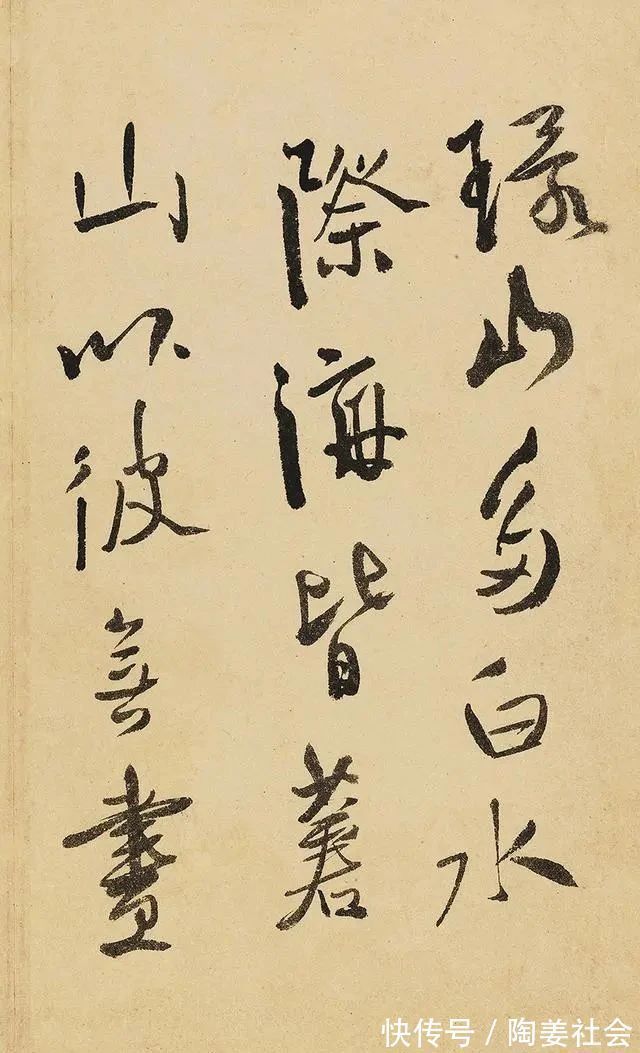 環山多白水
際海皆蒼
山以彼無盡
快传号/陶姜社会